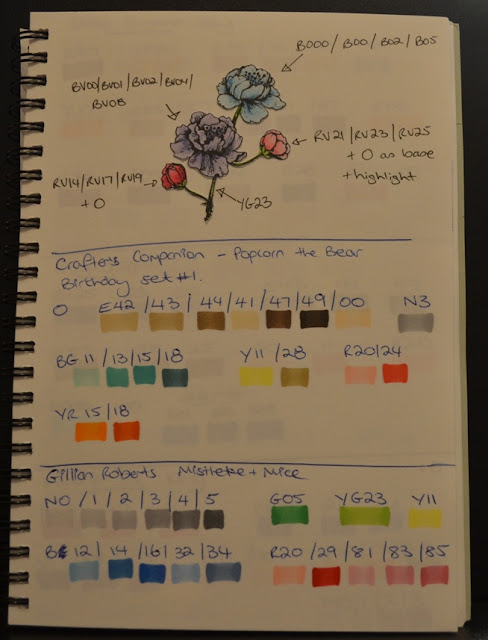 B000/B00/B02/B05
BV00/BV01/BV02/BV04/
BV08
RV21/RV23/RV25
+ 0 as base
+ highlight
RV14/RV17/RV19
+ 0
YG23
Crafters Companion - Popcorn the Bear
Birthday set #1.
0 E42/43/44/41/47/49/00 N3
BG 11/13/15/18 Y11/28 R20/24
YR 15/18
Gillian Roberts Mistletoe + Mice
N0/1/2/3/4/5 G05 YG23 Y11
B 12/14/16/32/34 R20/29/81/83/85